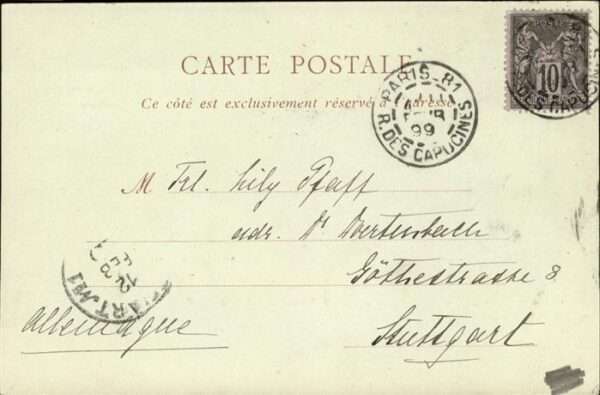 CARTE POSTALE
Ce côté est exclusivement réservé à l'adresse
PARIS_81
FEVR
99
R. DES CAPUCINES
POSTES
10
DES CAPUCINES
M Frl. Lily Pfaff
adr. Dr Doertenbach
Göthestrasse 8
Stuttgart
Allemagne
12
FEB
ART. No 1